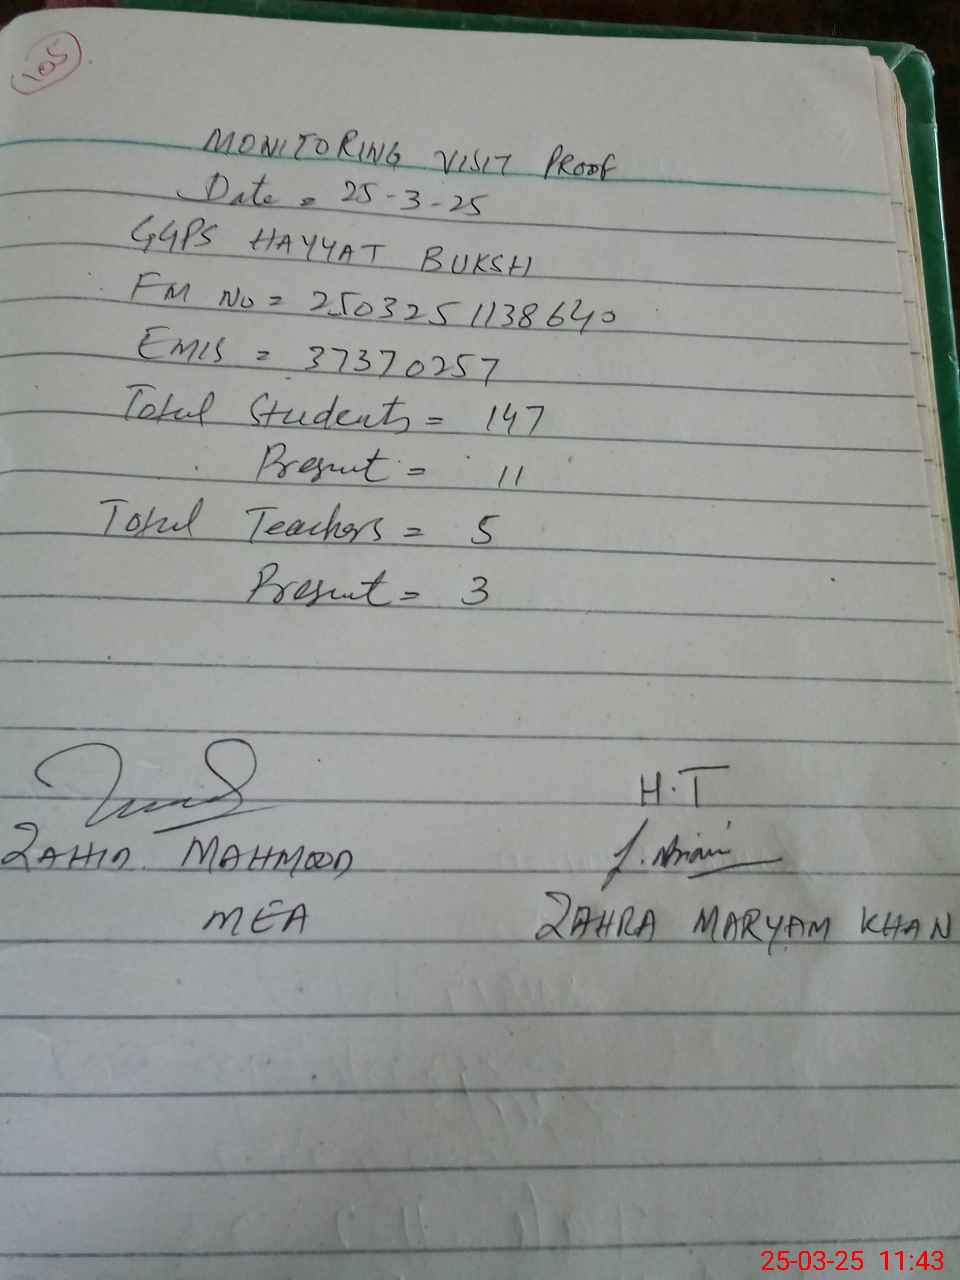 105
MONITORING VISIT PROOF
Date = 25-3-25
GGPS HAYYAT BUKSH
FM No = 2503251138640
EMIS = 37370257
Total Students = 147
Present = 11
Total Teachers = 5
Present = 3
H.T
ZAHID MAHMOOD
MEA
ZAHRA MARYAM KHAN
25-03-25 11:43